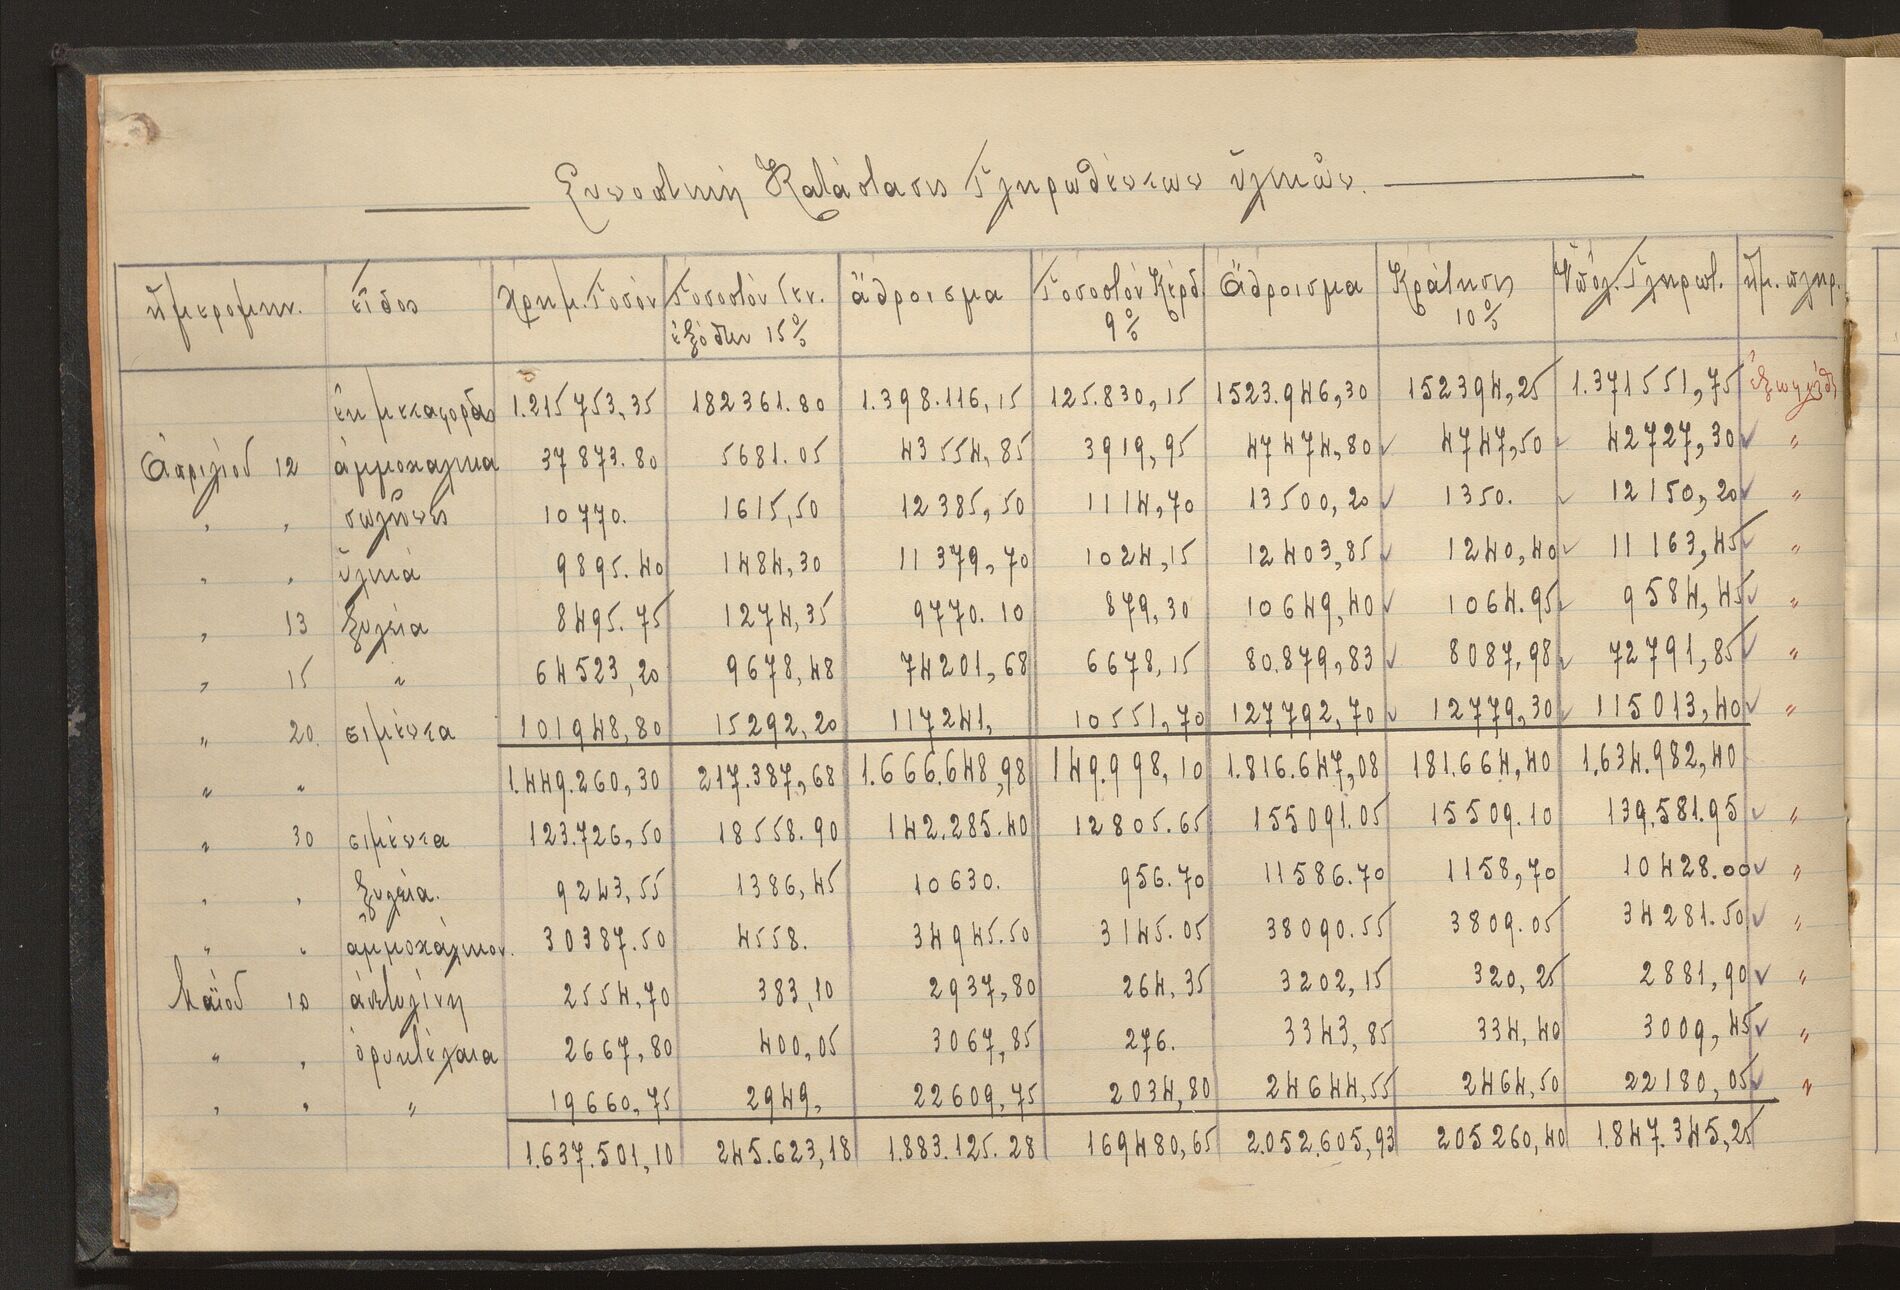 Συνοπτική Κατάστασις Πληρωθέντων ὑλικῶν.
ἡμερομην. εἶδος Χρημ. Ποσόν Ποσοστόν Γεν. ἐξόδων 15% ἄθροισμα Ποσοστόν Κέρδ. 9% ἄθροισμα Κράτησις 10% Ὑπόλ. Πληρωτ. ἡμ. πληρ.
ἐκ μεταφορᾶς 1.215753,35 182361.80 1.398.116,15 125.830,15 1523.946,30 152394,25 1.371551,75 ἐξωφλήθη
Ἀπριλίου 12 ἀμμοχάλικα 37873.80 5681.05 43554,85 3919,95 47474,80 ✓ 4747,50 ✓ 42727,30 ✓ "
" " σωλῆνες 10770. 1615,50 12385,50 1114,70 13500,20 ✓ 1350. ✓ 12150,20 ✓ "
" " ὑλικά 9895.40 1484,30 11379,70 1024,15 12403,85 ✓ 1240,40 ✓ 11163,45 ✓ "
" 13 ξυλεία 8495.75 1274,35 9770.10 879,30 10649,40 ✓ 1064.95 ✓ 9584,45 ✓ "
" 15 " 64523,20 9678,48 74201,68 6678,15 80.879,83 ✓ 8087,98 ✓ 72791,85 ✓ "
" 20. σιμέντα 101948,80 15292,20 117241, 10551,70 127792,70 ✓ 12779,30 ✓ 115013,40 ✓ "
" " 1.449.260,30 217.387,68 1.666.648,98 149.998,10 1.816.647,08 181.664,40 1.634.982,40
" 30 σιμέντα 123.726,50 18558.90 142.285.40 12805.65 155091.05 15509.10 139.581.95 ✓ "
" " ξυλεία. 9243,55 1386,45 10630. 956.70 11586.70 1158,70 10428.00 ✓ "
" " ἀμμοχάλικον. 30387.50 4558. 34945.50 3145.05 38090.55 3809.05 34281.50 ✓ "
Μαΐου 10 ἀσετυλίνη 2554,70 383,10 2937,80 264,35 3202,15 320,25 2881,90 ✓ "
" " ὀρυκτέλαια 2667,80 400,05 3067,85 276. 3343,85 334,40 3009,45 ✓ "
" " " 19660,75 2949, 22609,75 2034,80 24644,55 2464,50 22180,05 ✓ "
1.637.501,10 245.623,18 1.883.125.28 169480,65 2.052.605,93 205260,40 1.847.345,25